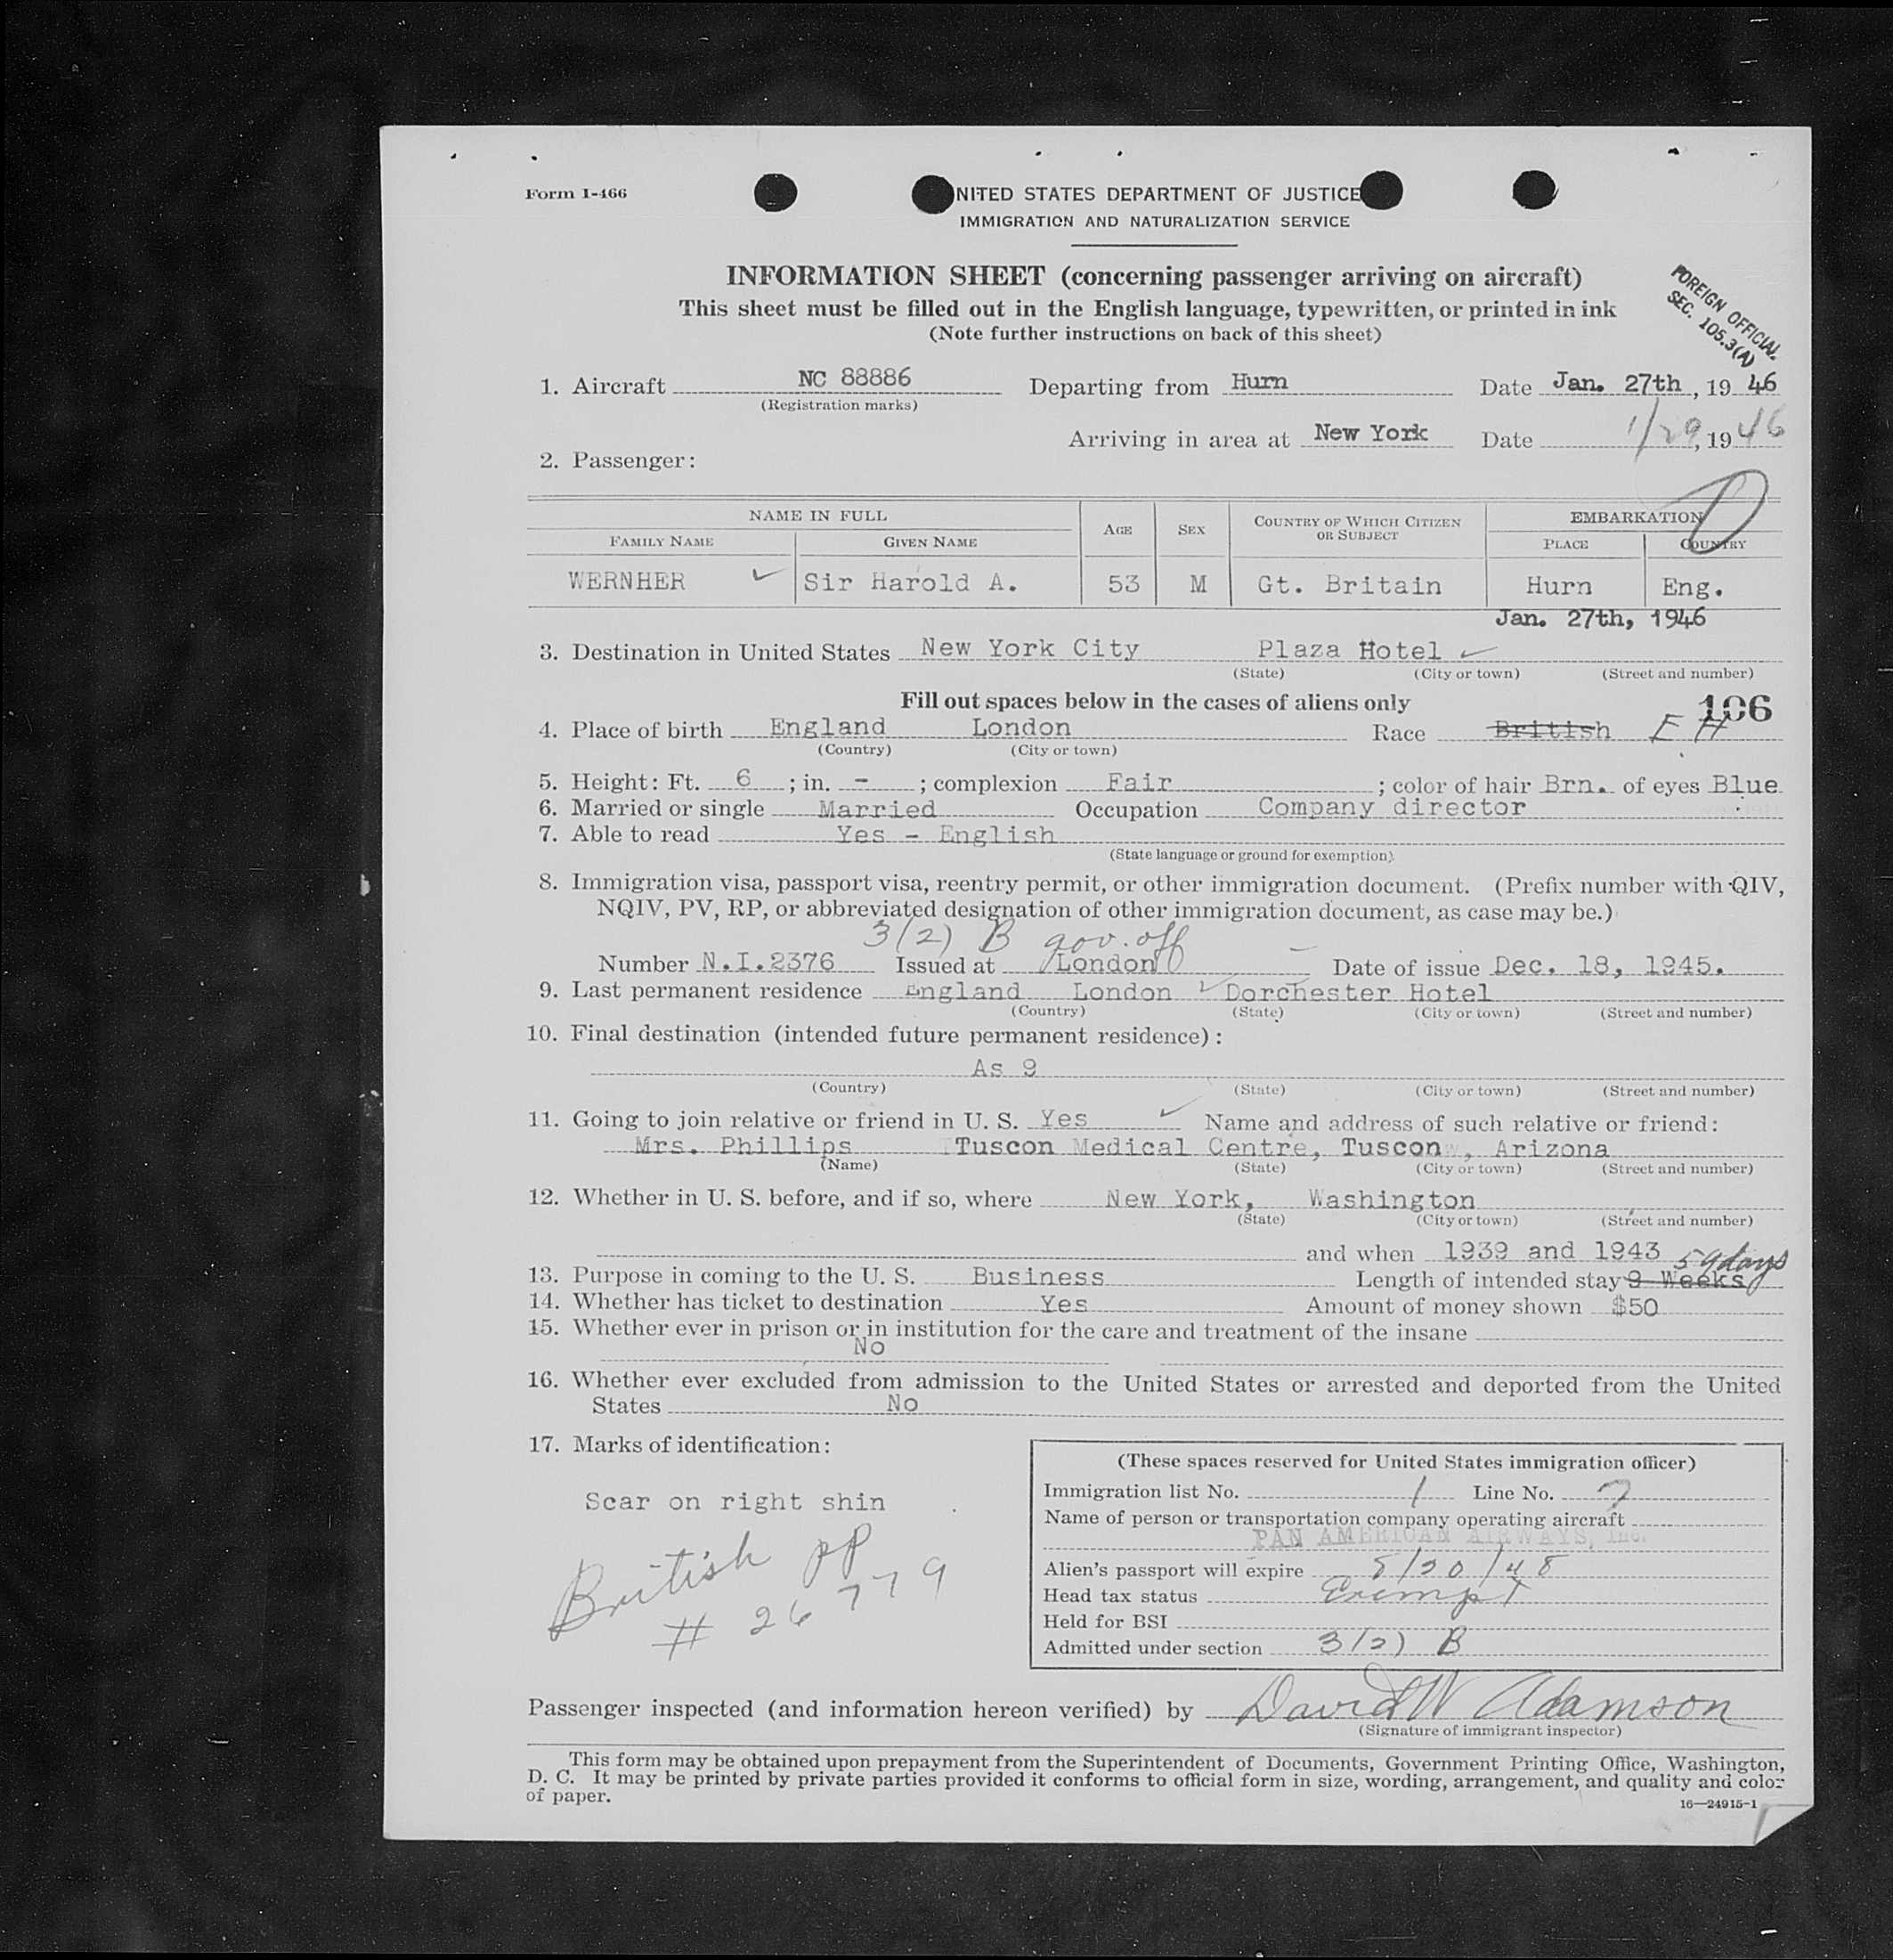 Form I-466
NITED STATES DEPARTMENT OF JUSTICE
IMMIGRATION AND NATURALIZATION SERVICE
INFORMATION SHEET (concerning passenger arriving on aircraft)
This sheet must be filled out in the English language, typewritten, or printed in ink
(Note further instructions on back of this sheet)
FOREIGN OFFICIAL
SEC. 105.3(A)
1. Aircraft NC 88886 Departing from Hurn Date Jan. 27th, 1946
(Registration marks)
Arriving in area at New York Date 1/29, 1946
2. Passenger:
NAME IN FULL AGE SEX COUNTRY OF WHICH CITIZEN OR SUBJECT EMBARKATION
FAMILY NAME GIVEN NAME PLACE COUNTRY
WERNHER Sir Harold A. 53 M Gt. Britain Hurn Eng.
Jan. 27th, 1946
3. Destination in United States New York City Plaza Hotel
(State) (City or town) (Street and number)
Fill out spaces below in the cases of aliens only
106
4. Place of birth England London Race British
(Country) (City or town)
5. Height: Ft. 6 ; in. - ; complexion Fair ; color of hair Brn. of eyes Blue
6. Married or single Married Occupation Company director
7. Able to read Yes - English
(State language or ground for exemption)
8. Immigration visa, passport visa, reentry permit, or other immigration document. (Prefix number with QIV,
NQIV, PV, RP, or abbreviated designation of other immigration document, as case may be.)
3(2) B gov. off
Number N.I.2376 Issued at London Date of issue Dec. 18, 1945.
9. Last permanent residence England London Dorchester Hotel
(Country) (State) (City or town) (Street and number)
10. Final destination (intended future permanent residence):
As 9
(Country) (State) (City or town) (Street and number)
11. Going to join relative or friend in U. S. Yes Name and address of such relative or friend:
Mrs. Phillips Tuscon Medical Centre, Tuscon, Arizona
(Name) (State) (City or town) (Street and number)
12. Whether in U. S. before, and if so, where New York, Washington
(State) (City or town) (Street and number)
and when 1939 and 1943 59 days
13. Purpose in coming to the U. S. Business Length of intended stay 9 Weeks
14. Whether has ticket to destination Yes Amount of money shown $50
15. Whether ever in prison or in institution for the care and treatment of the insane
No
16. Whether ever excluded from admission to the United States or arrested and deported from the United
States No
17. Marks of identification:
Scar on right shin
British pp
# 26779
(These spaces reserved for United States immigration officer)
Immigration list No. 1 Line No. 7
Name of person or transportation company operating aircraft
PAN AMERICAN AIRWAYS, Inc.
Alien's passport will expire
Head tax status Exempt
Held for BSI
Admitted under section 3(2) B
Passenger inspected (and information hereon verified) by David W Adamson
(Signature of immigrant inspector)
This form may be obtained upon prepayment from the Superintendent of Documents, Government Printing Office, Washington,
D. C. It may be printed by private parties provided it conforms to official form in size, wording, arrangement, and quality and color
of paper.
16—24915-1